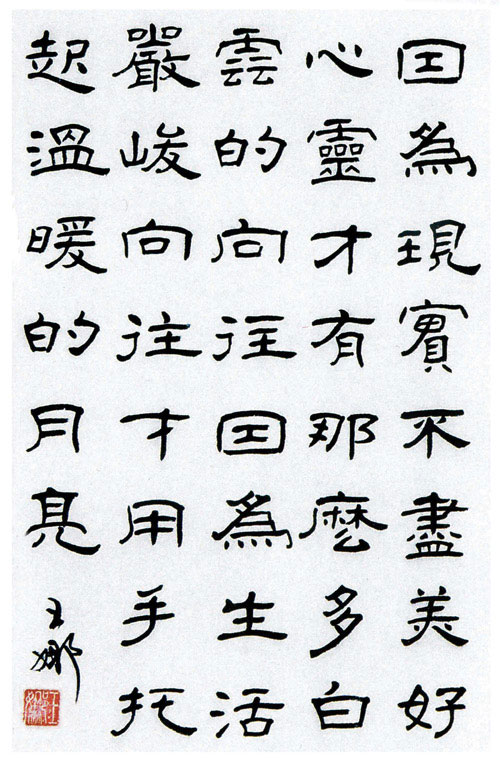 因為現實不盡美好
心靈才有那麼多白
雲的向往因為生活
嚴峻向往才用手托
起溫暖的月亮
王娜